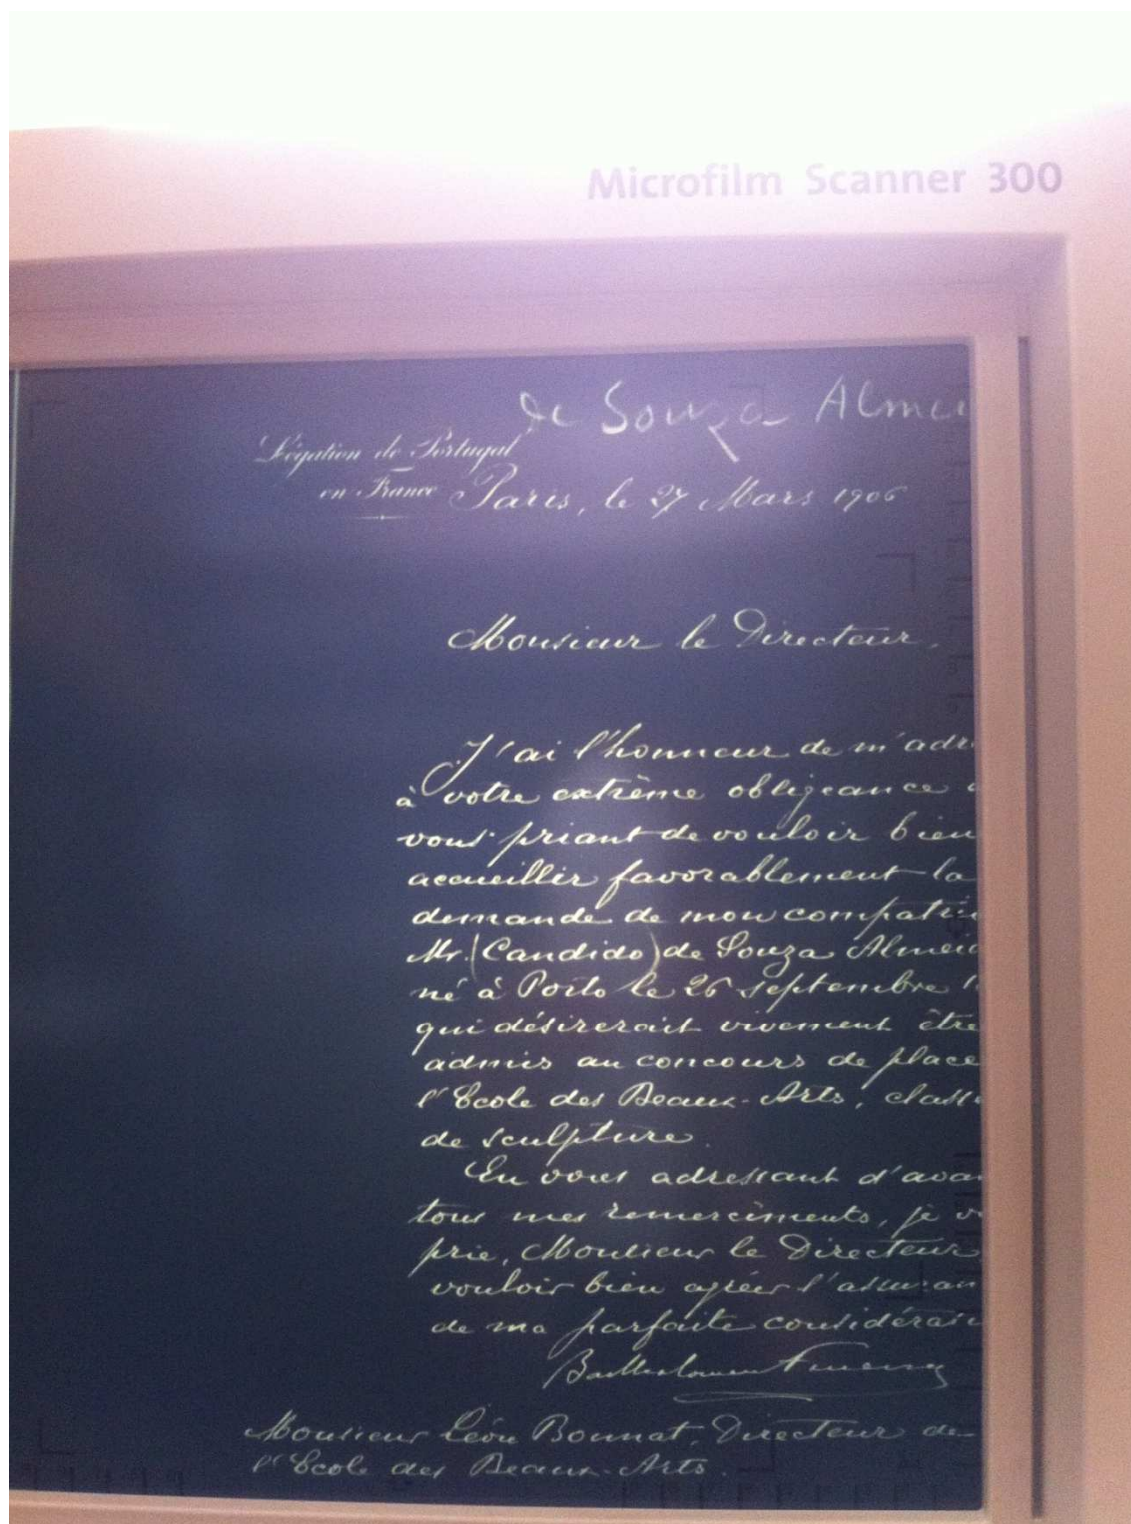 Microfilm Scanner 300
de Souza Almei
Légation de Portugal
en France
Paris, le 27 Mars 1906
Monsieur le Directeur,
J'ai l'honneur de m'adre
à votre extrême obligeance
vous priant de vouloir bien
accueillir favorablement la
demande de mon compatrio
Mr. (Candido) de Souza Almeid
né à Porto le 26 septembre 1
qui désirerait vivement être
admis au concours de place
l'Ecole des Beaux-Arts, classe
de sculpture.
En vous adressant d'avan
tous mes remerciments, je vo
prie, Monsieur le Directeur
vouloir bien agréer l'assuran
de ma parfaite considérati
Monsieur Léon Bonnat, Directeur de
l'Ecole des Beaux-Arts.